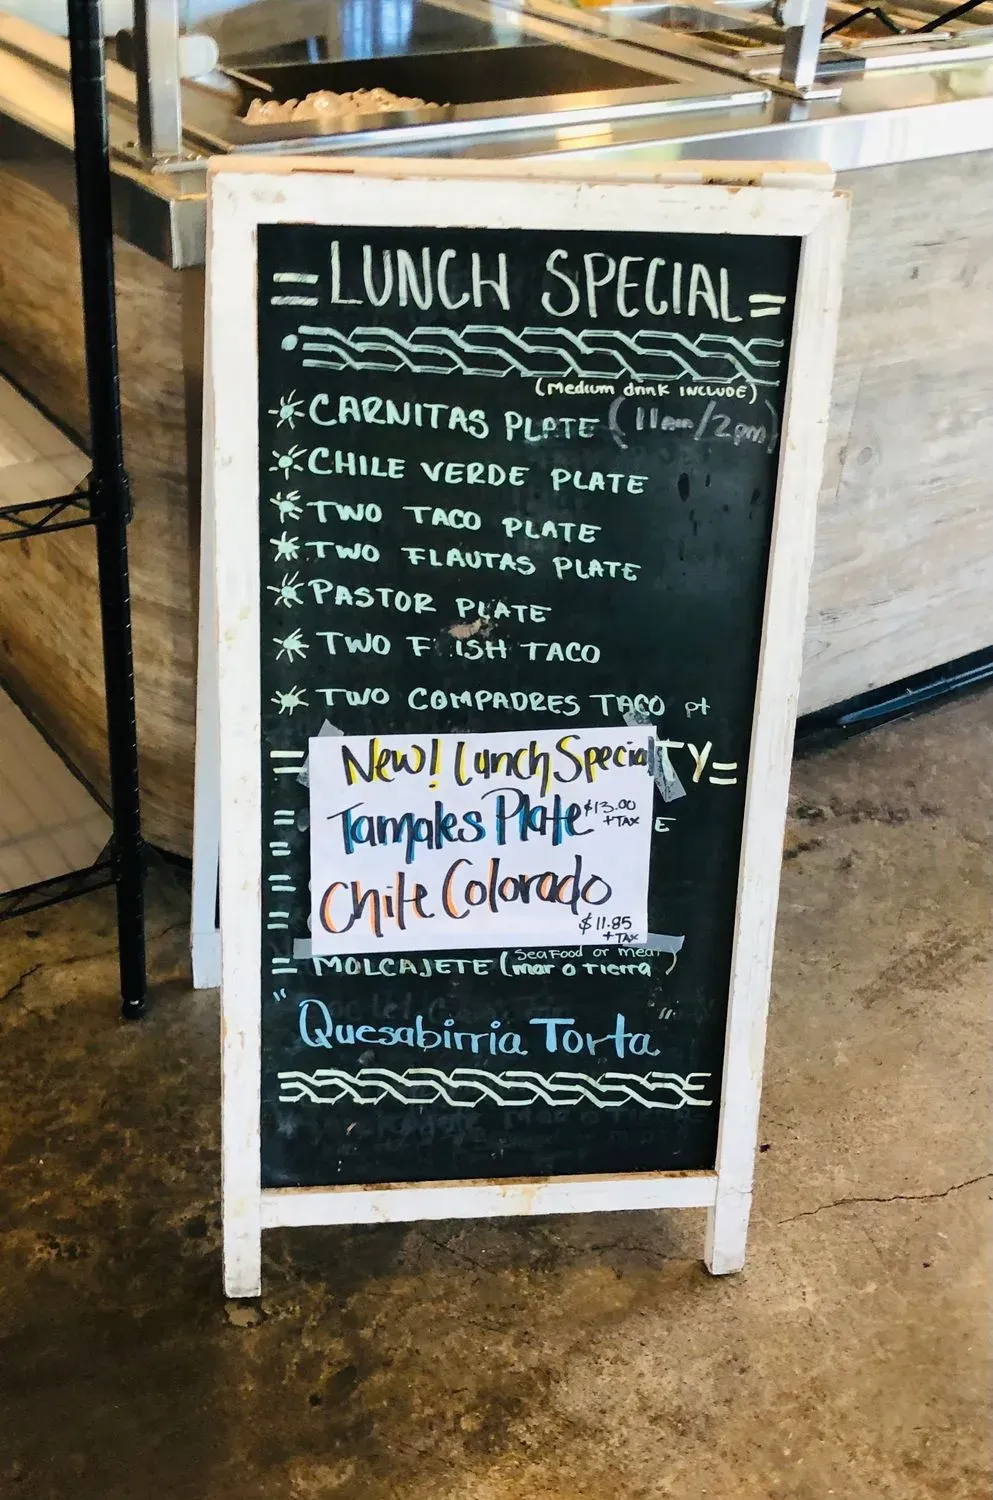 =LUNCH SPECIAL=
(Medium drink INCLUDE)
CARNITAS PLATE (11am/2pm)
CHILE VERDE PLATE
TWO TACO PLATE
TWO FLAUTAS PLATE
PASTOR PLATE
TWO FISH TACO
TWO COMPADRES TACO pt
New! Lunch Special TY=
Tamales Plate $13.00 +TAX E
Chile Colorado
$11.85
+TAX
MOLCAJETE (SeaFood or meat
mar o tierra)
"Quesabirria Torta"